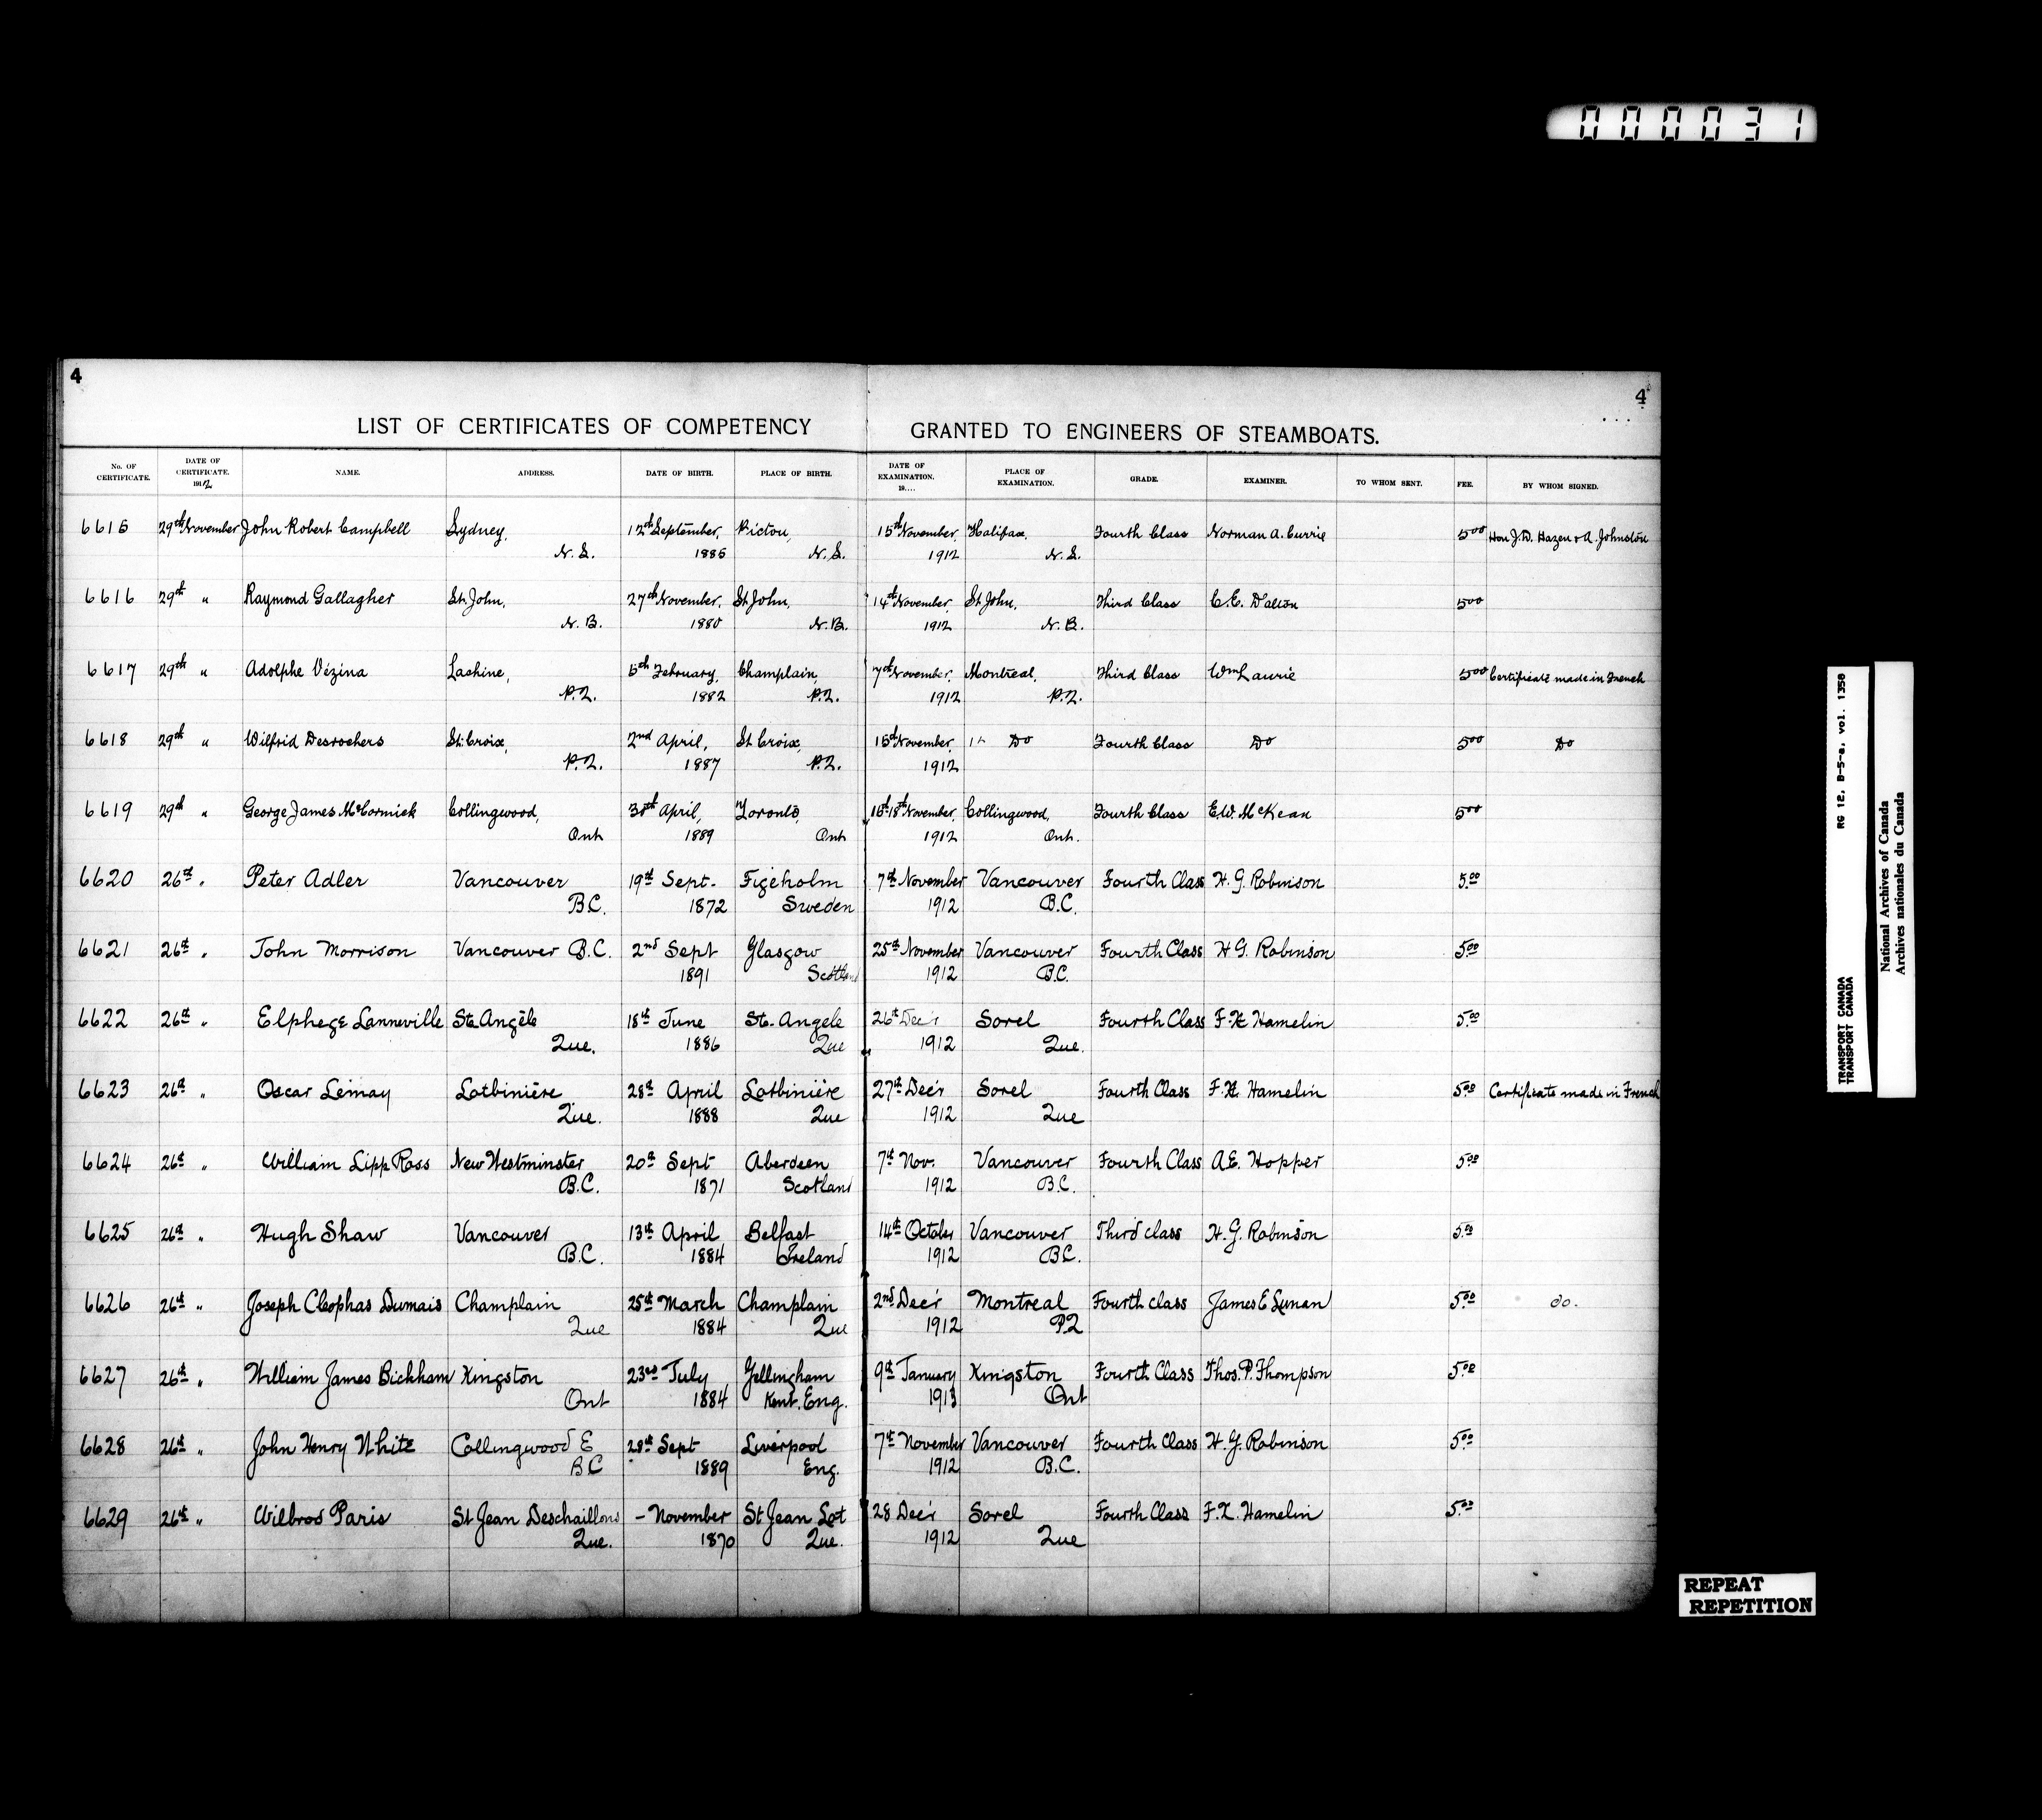 000031
4
4
LIST OF CERTIFICATES OF COMPETENCY GRANTED TO ENGINEERS OF STEAMBOATS.
No. OF CERTIFICATE. DATE OF CERTIFICATE. 1912 NAME. ADDRESS. DATE OF BIRTH. PLACE OF BIRTH. DATE OF EXAMINATION. 19.... PLACE OF EXAMINATION. GRADE. EXAMINER. TO WHOM SENT. FEE. BY WHOM SIGNED.
6615 29th November John Robert Campbell Sydney, 12th September, Pictou, 15th November, Halifax, Fourth Class Norman A. Currie 5.00 Hon J.D. Hazen & A. Johnston
N.S. 1886 N.S. 1912 N.S.
6616 29th " Raymond Gallagher St. John, 27th November, St John, 14th November, St John, Third Class C.E. Dalton 5.00
N.B. 1880 N.B. 1912 N.B.
6617 29th " Adolphe Vézina Lachine, 5th February, Champlain, 7th November, Montreal, Third Class Wm Laurie 5.00 Certificate made in French
P.Q. 1882 P.Q. 1912 P.Q.
6618 29th " Wilfrid Desrochers St. Croix, 2nd April, St Croix, 15th November, Do Fourth Class Do 5.00 Do
P.Q. 1887 P.Q. 1912
6619 29th " George James McCormick Collingwood, 30th April, Toronto, 16th-18th November, Collingwood, Fourth Class E.W. McKean 5.00
Ont 1889 Ont 1912 Ont.
6620 26th " Peter Adler Vancouver 19th Sept. Figeholm 7th November Vancouver Fourth Class H. G. Robinson 5.00
B.C. 1872 Sweden 1912 B.C.
6621 26th " John Morrison Vancouver B.C. 2nd Sept Glasgow 25th November Vancouver Fourth Class H G. Robinson 5.00
1891 Scotland 1912 B.C.
6622 26th " Elphege Lanneville Ste Angèle 18th June Ste. Angele 26th Dec'r Sorel Fourth Class F. X Hamelin 5.00
Que. 1886 Que 1912 Que.
6623 26th " Oscar Lemay Lotbinière 28th April Lotbinière 27th Dec'r Sorel Fourth Class F. X. Hamelin 5.00 Certificate made in French
Que. 1888 Que 1912 Que
6624 26th " William Lipp Ross New Westminster 20th Sept Aberdeen 7th Nov. Vancouver Fourth Class A.E. Hopper 5.00
B.C. 1871 Scotland 1912 B.C.
6625 26th " Hugh Shaw Vancouver 13th April Belfast 14th October Vancouver Third class H. G. Robinson 5.00
B.C. 1884 Ireland 1912 B.C.
6626 26th " Joseph Cleophas Dumais Champlain 25th March Champlain 2nd Dec'r Montreal Fourth class James E Lunan 5.00 do.
Que 1884 Que 1912 PQ
6627 26th " William James Bickham Kingston 23rd July Gillingham 9th January Kingston Fourth Class Thos. P. Thompson 5.00
Ont 1884 Kent. Eng. 1913 Ont
6628 26th " John Henry White Collingwood E 28th Sept Liverpool 7th November Vancouver Fourth Class H. G. Robinson 5.00
BC 1889 Eng. 1912 B.C.
6629 26th " Wilbrod Paris St Jean Deschaillons - November St Jean Lot 28 Dec'r Sorel Fourth Class F. X. Hamelin 5.00
Que. 1870 Que. 1912 Que
TRANSPORT CANADA RG 12, B-5-a, vol. 1358
TRANSPORT CANADA
National Archives of Canada
Archives nationales du Canada
REPEAT
REPETITION